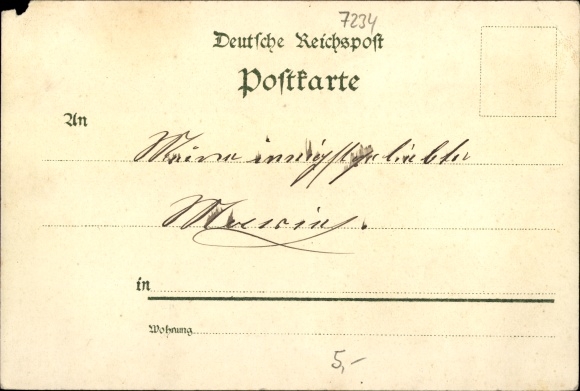 7234
Deutsche Reichspost
Postkarte
An
Meine innigstgeliebte
in
Wohnung
5,-